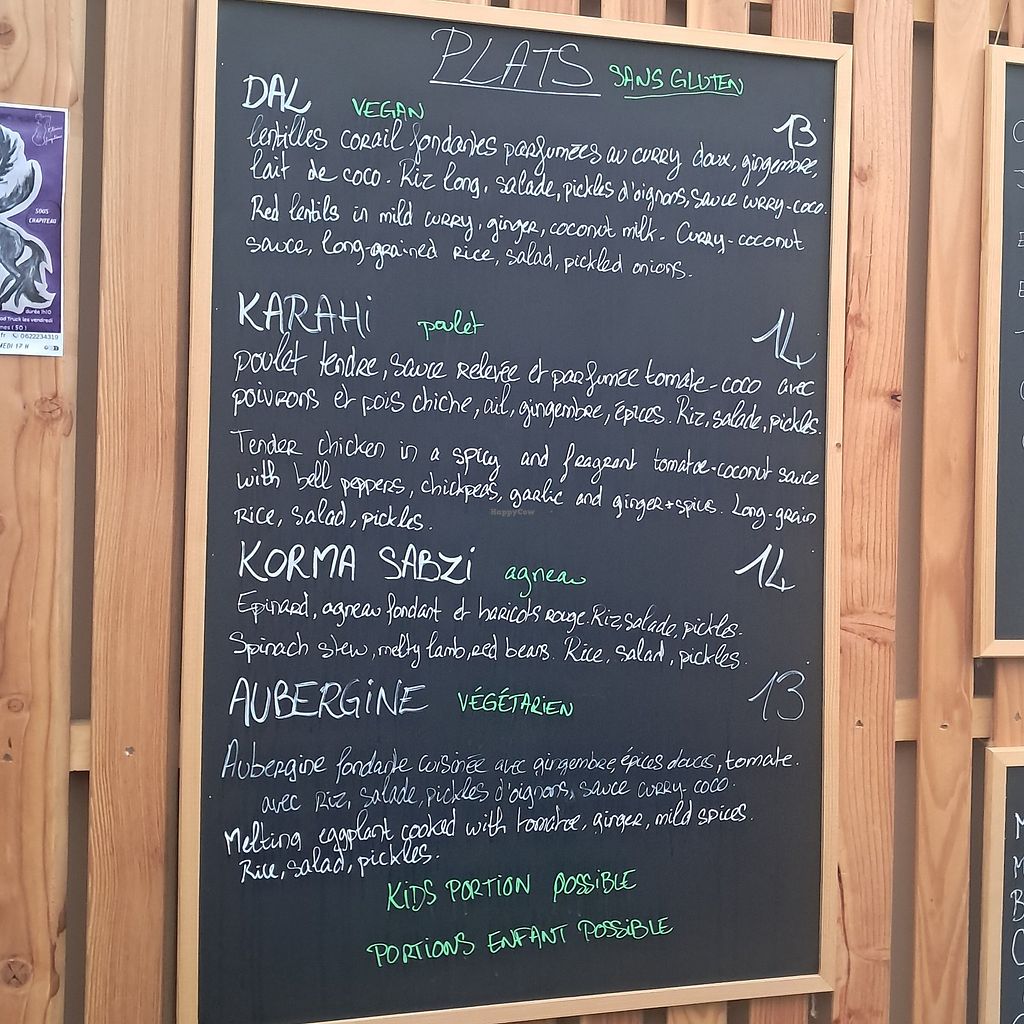 PLATS SANS GLUTEN
DAL VEGAN 13
lentilles corail fondantes parfumées au curry doux, gingembre,
lait de coco. Riz long, salade, pickles d'oignons, sauce curry-coco.
Red lentils in mild curry, ginger, coconut milk - Curry-coconut
sauce, long-grained rice, salad, pickled onions.
KARAHI poulet 14
poulet tendre, sauce relevée et parfumée tomate-coco avec
poivrons et pois chiche, ail, gingembre, épices. Riz, salade, pickles.
Tender chicken in a spicy and fragrant tomatoe-coconut sauce
with bell peppers, chickpeas, garlic and ginger+spices. Long-grain
rice, salad, pickles.
KORMA SABZI agneau 14
Epinard, agneau fondant et haricots rouge. Riz, salade, pickles.
Spinach stew, melty lamb, red beans. Rice, salad, pickles.
AUBERGINE VÉGÉTARIEN 13
Aubergine fondante cuisinée avec gingembre, épices douces, tomate.
avec riz, salade, pickles d'oignons, sauce curry-coco.
Melting eggplant cooked with tomatoe, ginger, mild spices.
Rice, salad, pickles.
KIDS PORTION POSSIBLE
PORTIONS ENFANT POSSIBLE
SOUS
CHAPITEAU
Durée 1h10
Truck les vendredi
0622234319
17 H
HappyCow